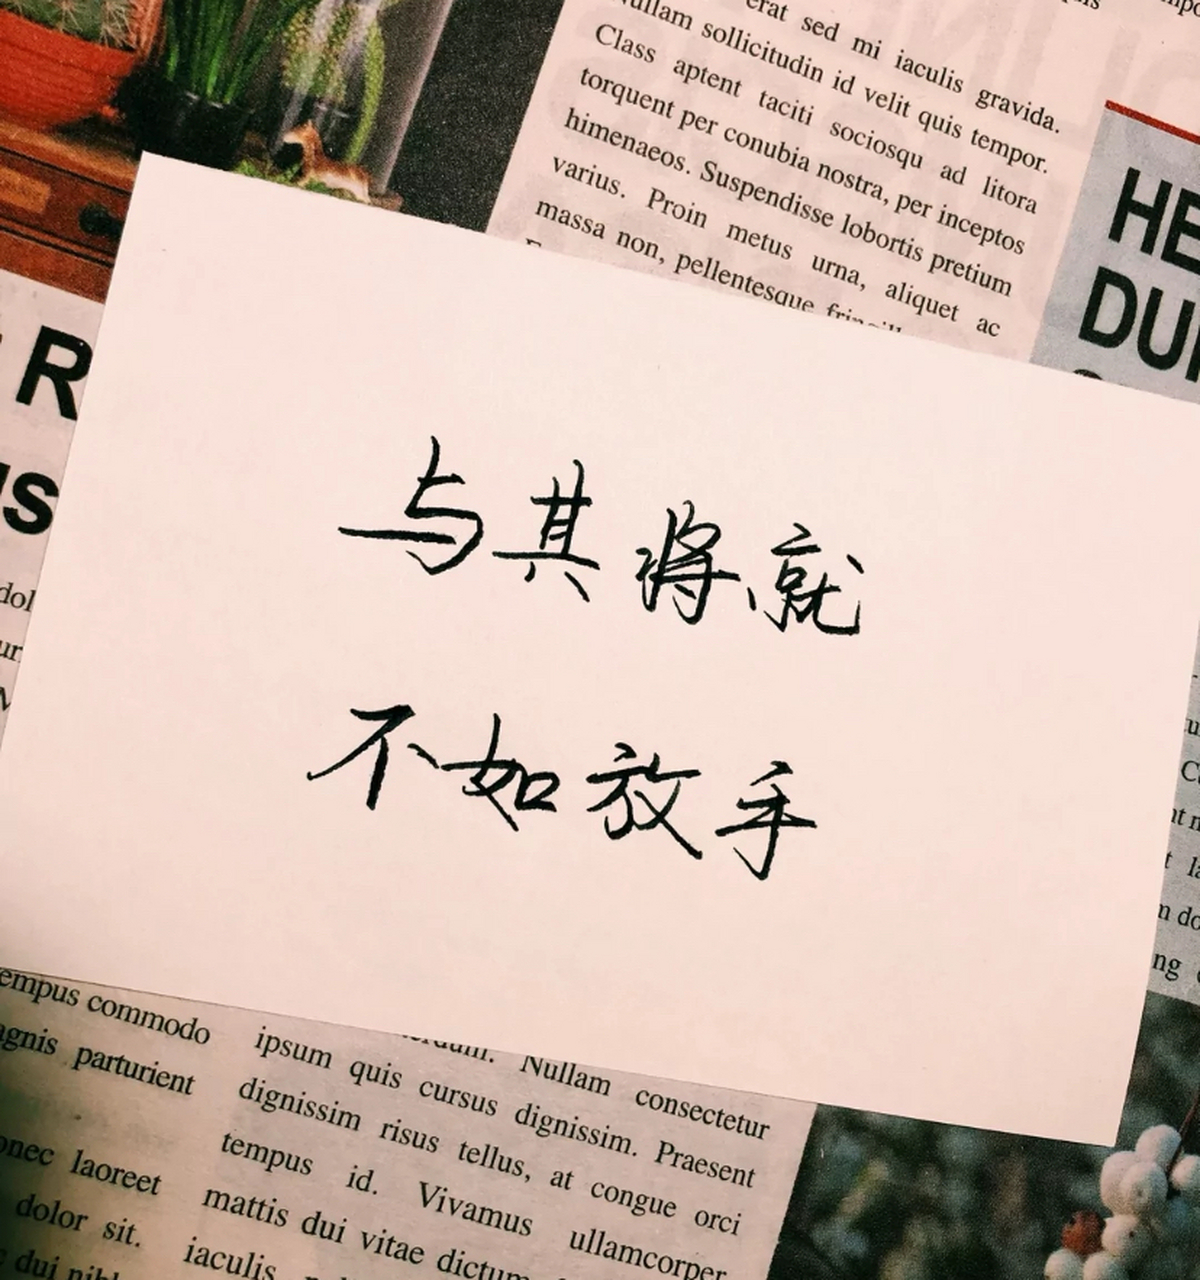 erat sed mi iaculis gravida.
Nullam sollicitudin id velit quis tempor.
Class aptent taciti sociosqu ad litora
torquent per conubia nostra, per inceptos
himenaeos. Suspendisse lobortis pretium
varius. Proin metus urna, aliquet ac
massa non, pellentesque
HE
DUI
R
US
dol
ur
与其将就
不如放手
tempus commodo
agnis parturient
onec laoreet
dolor sit.
dui nibh
Nullam consectetur
ipsum quis cursus dignissim. Praesent
dignissim risus tellus, at congue orci
tempus id. Vivamus ullamcorper
mattis dui vitae dictum
iaculis